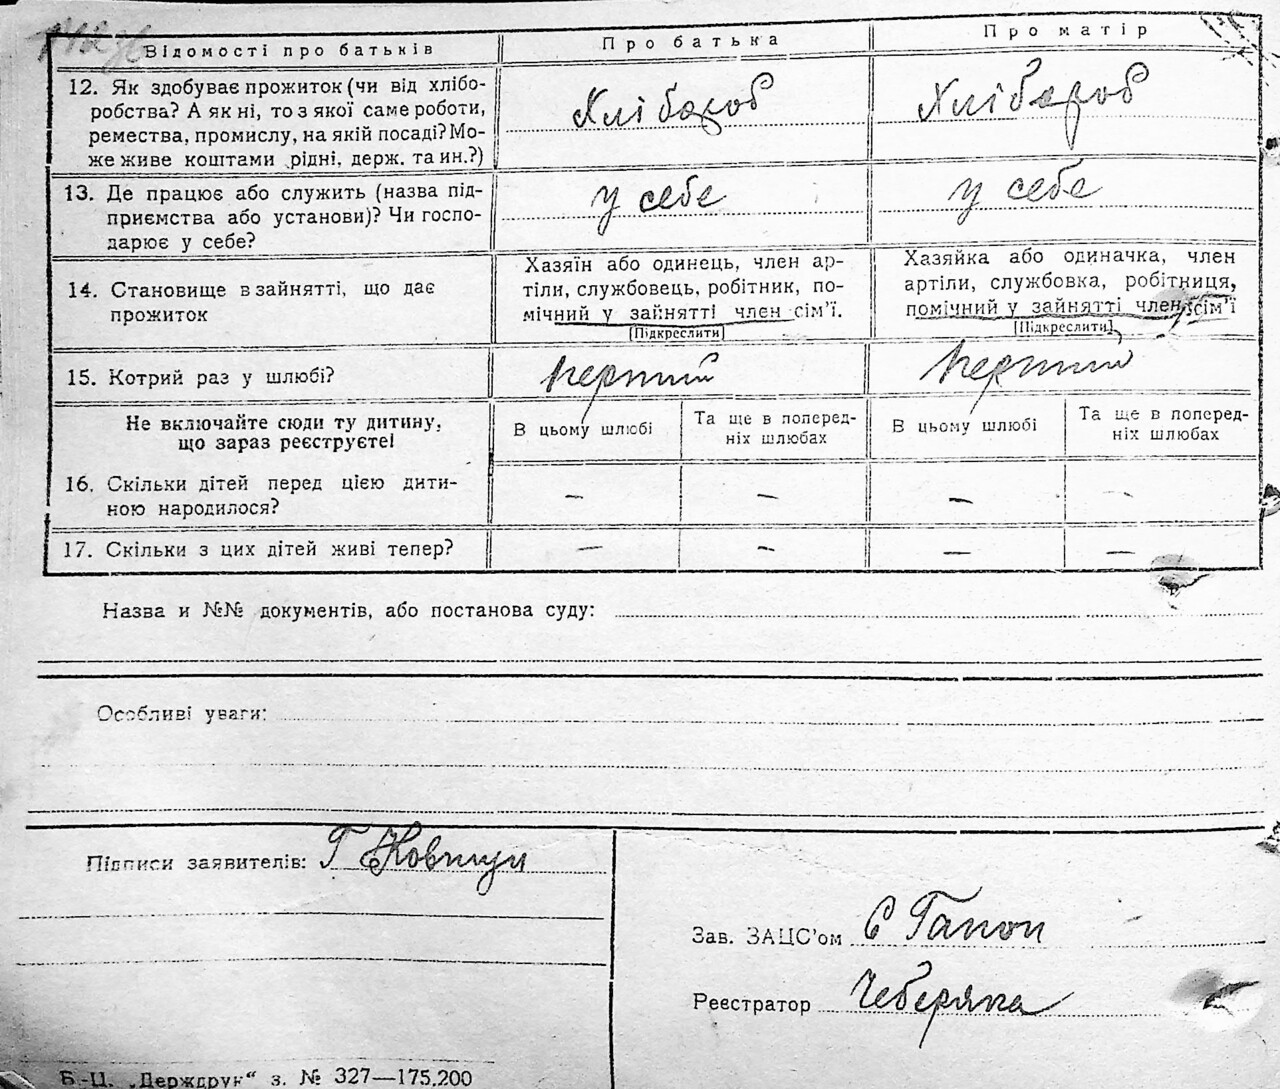 Відомості про батьків
Про батька
Про матір
12. Як здобуває прожиток (чи від хлібо-
робства? А як ні, то з якої саме роботи,
ремества, промислу, на якій посаді? Мо-
же живе коштами рідні, держ. та ин.?)
Хлібороб
Хлібороб
13. Де працює або служить (назва під-
приємства або установи)? Чи госпо-
дарює у себе?
у себе
у себе
14. Становище в зайнятті, що дає
прожиток
Хазяїн або одинець, член ар-
тіли, службовець, робітник, по-
мічний у зайнятті член сім'ї.
[Підкреслити]
Хазяйка або одиначка, член
артіли, службовка, робітниця,
помічний у зайнятті член сім'ї
[Підкреслити]
15. Котрий раз у шлюбі?
перший
перший
Не включайте сюди ту дитину,
що зараз реєструєте!
В цьому шлюбі
Та ще в поперед-
ніх шлюбах
В цьому шлюбі
Та ще в поперед-
ніх шлюбах
16. Скільки дітей перед цією дити-
ною народилося?
— — — —
17. Скільки з цих дітей живі тепер?
— — — —
Назва и №№ документів, або постанова суду:
Особливі уваги:
Підписи заявителів: Г
Зав. ЗАЦС'ом Є Гапон
Реєстратор Чеберяка
Б.-Ц. „Держдрук“ з. № 327—175.200